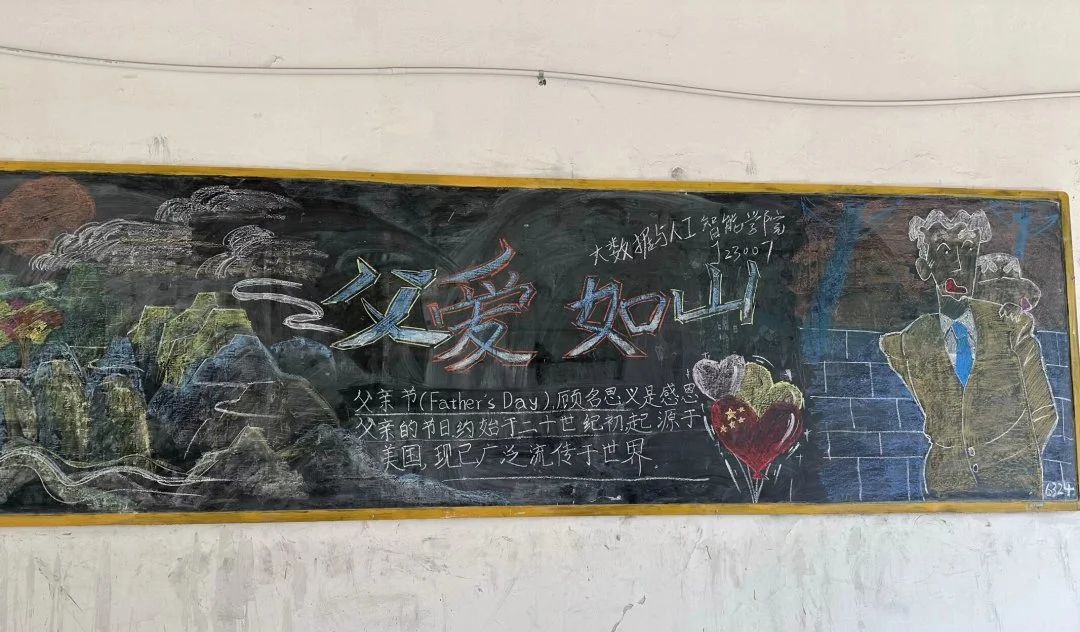 大数据与人工智能学院
j23007
父爱如山
父亲节(Father's Day),顾名思义是感恩
父亲的节日约始于二十世纪初,起源于
美国,现已广泛流传于世界.
6324